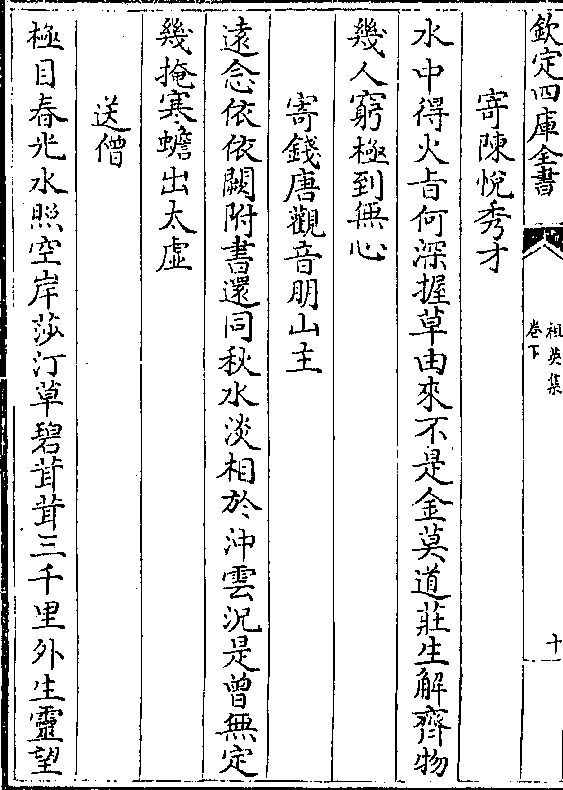 欽定四庫全書
祖英集
卷下
十
寄陳悅秀才
水中得火㫖何深握草由來不是金莫道莊生解齊物
幾人窮極到無心
寄錢唐觀音朋山主
遠念依依闕附書還同秋水淡相於沖雲況是曾無定
幾掩寒蟾出太虛
送僧
極目春光水照空岸莎汀草碧茸茸三千里外生靈望